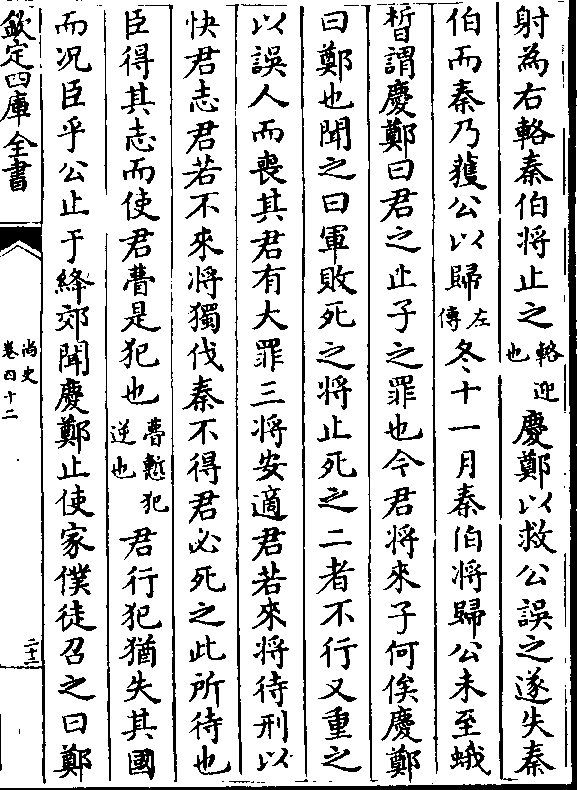 射為右輅秦伯將止之輅迎也慶鄭以救公誤之遂失秦
伯而秦乃獲公以歸左傳冬十一月秦伯將歸公未至蛾
晳謂慶鄭曰君之止子之罪也今君將來子何俟慶鄭
曰鄭也聞之曰軍敗死之將止死之二者不行又重之
以誤人而喪其君有大罪三將安適君若來將待刑以
快君志君若不來將獨伐秦不得君必死之此所待也
臣得其志而使君瞢是犯也瞢慙犯逆也君行犯猶失其國
而况臣乎公止于絳郊聞慶鄭止使家僕徒召之曰鄭
欽定四庫全書
尚史
卷四十二
二十三